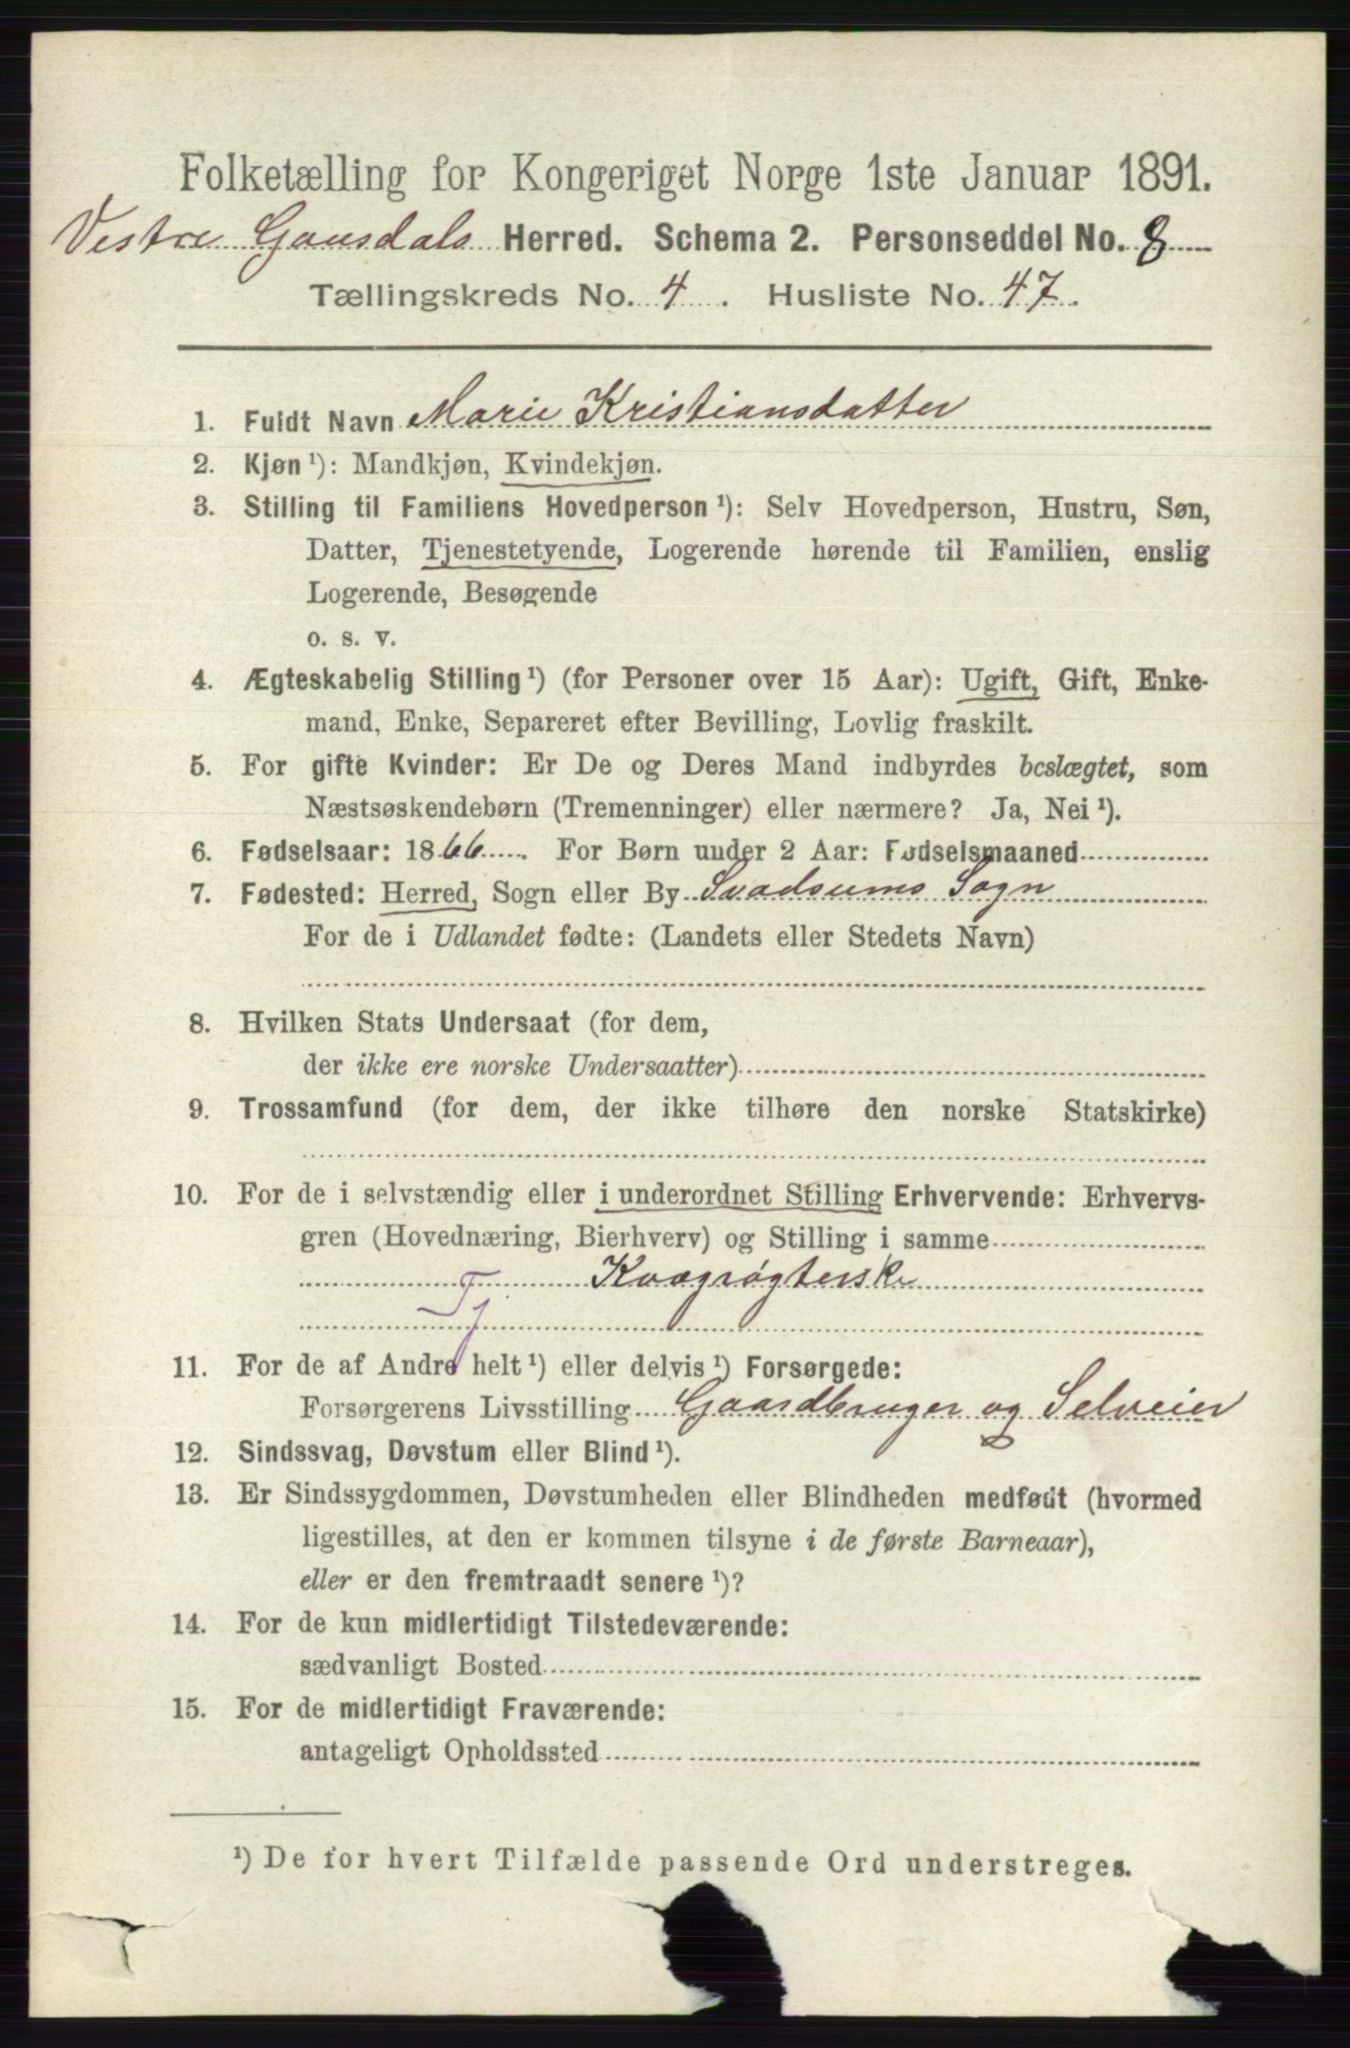 Folketælling for Kongeriget Norge 1ste Januar 1891.
Vestre Gausdals Herred. Schema 2. Personseddel No. 8
Tællingskreds No. 4. Husliste No. 47.
1. Fuldt Navn Marie Kristiansdatter
2. Kjøn ¹): Mandkjøn, Kvindekjøn.
3. Stilling til Familiens Hovedperson ¹): Selv Hovedperson, Hustru, Søn,
Datter, Tjenestetyende, Logerende hørende til Familien, enslig
Logerende, Besøgende
o. s. v.
4. Ægteskabelig Stilling ¹) (for Personer over 15 Aar): Ugift, Gift, Enke-
mand, Enke, Separeret efter Bevilling, Lovlig fraskilt.
5. For gifte Kvinder: Er De og Deres Mand indbyrdes beslægtet, som
Næstsøskendebørn (Tremenninger) eller nærmere? Ja, Nei ¹).
6. Fødselsaar: 1866. For Børn under 2 Aar: Fødselsmaaned
7. Fødested: Herred, Sogn eller By Svadsums Sogn
For de i Udlandet fødte: (Landets eller Stedets Navn)
8. Hvilken Stats Undersaat (for dem,
der ikke ere norske Undersaatter)
9. Trossamfund (for dem, der ikke tilhøre den norske Statskirke)
10. For de i selvstændig eller i underordnet Stilling Erhvervende: Erhvervs-
gren (Hovednæring, Bierhverv) og Stilling i samme
Kvægrøgterske
Tj
11. For de af Andre helt ¹) eller delvis ¹) Forsørgede:
Forsørgerens Livsstilling Gaardbruger og Selveier
12. Sindssvag, Døvstum eller Blind ¹).
13. Er Sindssygdommen, Døvstumheden eller Blindheden medfødt (hvormed
ligestilles, at den er kommen tilsyne i de første Barneaar),
eller er den fremtraadt senere ¹)?
14. For de kun midlertidigt Tilstedeværende:
sædvanligt Bosted
15. For de midlertidigt Fraværende:
antageligt Opholdssted
¹) De for hvert Tilfælde passende Ord understreges.